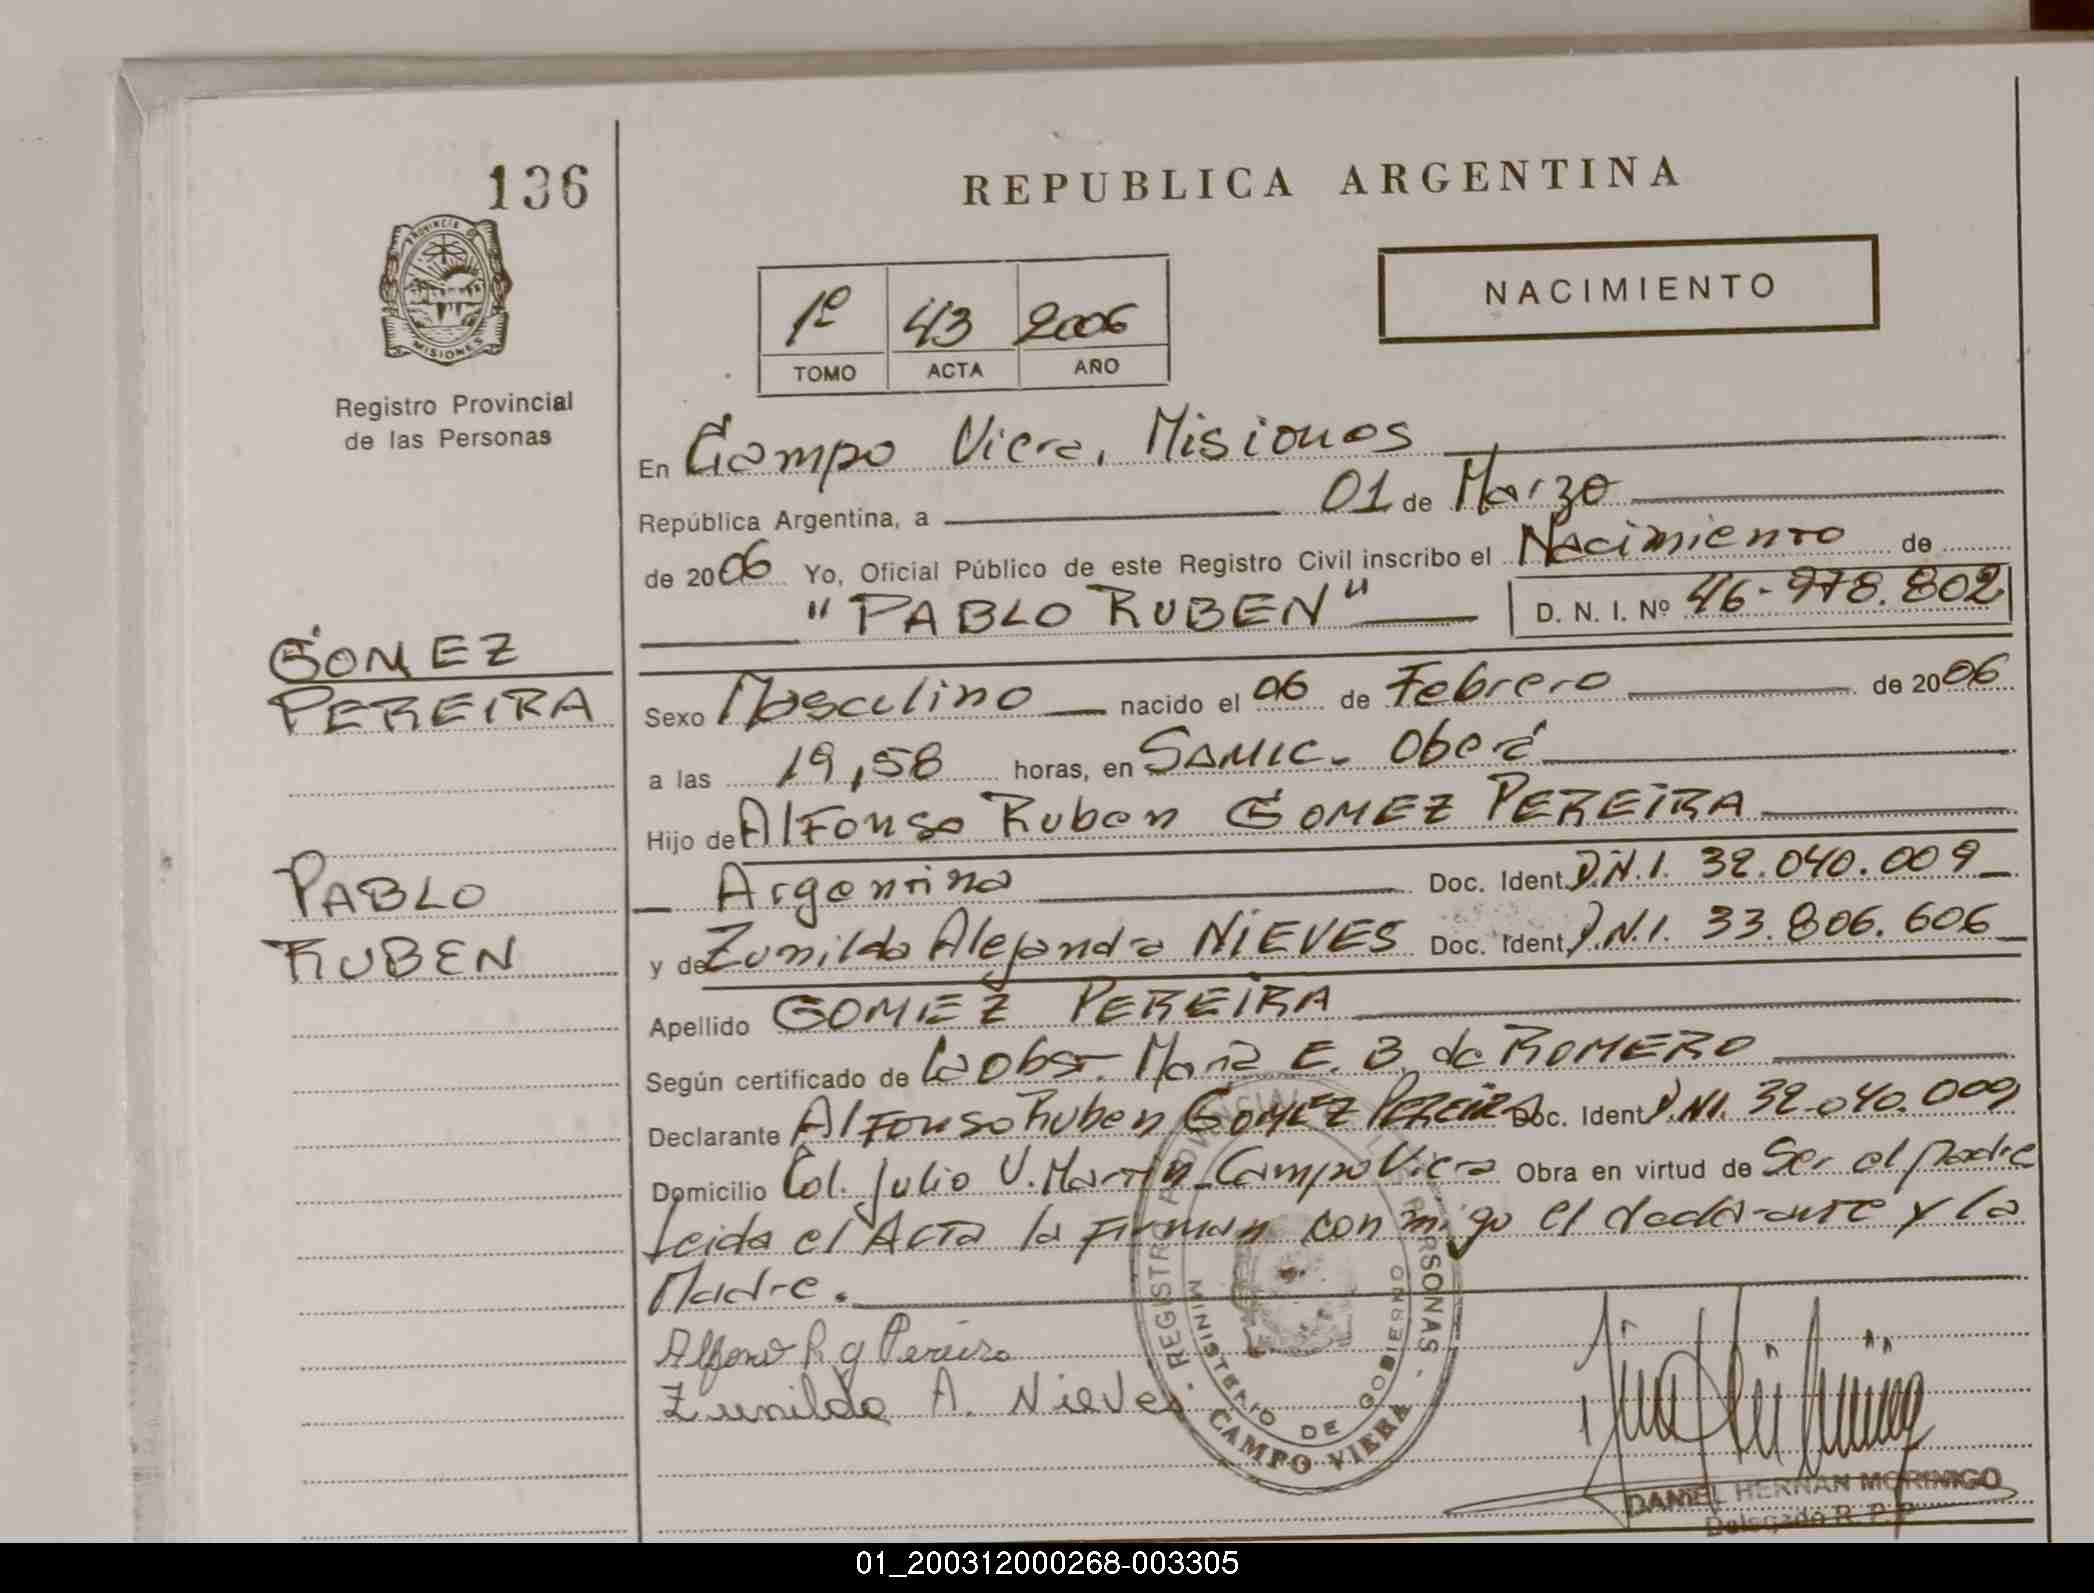 136
PROVINCIA DE
MISIONES
Registro Provincial
de las Personas
REPUBLICA ARGENTINA
1º 43 2006
TOMO ACTA AÑO
NACIMIENTO
En Campo Viera, Misiones
República Argentina, a 01 de Marzo
de 2006 Yo, Oficial Público de este Registro Civil inscribo el Nacimiento de
"PABLO RUBEN" D. N. I. Nº 46-978.802
GOMEZ
PEREIRA
Sexo Masculino nacido el 06 de Febrero de 2006
a las 19,58 horas, en SAMIC. Oberá
Hijo de Alfonso Ruben GOMEZ PEREIRA
Argentina Doc. Ident. D.N.I. 32.040.009
PABLO
RUBEN
y de Zunilda Alejandra NIEVES Doc. Ident. D.N.I. 33.806.606
Apellido GOMEZ PEREIRA
Según certificado de la obst. María E. B. de ROMERO
Declarante Alfonso Ruben GOMEZ PEREIRA Doc. Ident. D.N.I. 32.040.009
Domicilio Col. Julio U. Martín - Campo Viera Obra en virtud de Ser el padre
Leida el Acta la firman con migo el declarante y la
Madre.
Alfonso R g Pereira
Zunilda A. Nieves
REGISTRO PROVINCIAL DE LAS PERSONAS
MINISTERIO DE GOBIERNO
CAMPO VIERA
DANIEL HERNAN MORINIGO
Delegado R. P. P.
01_200312000268-003305